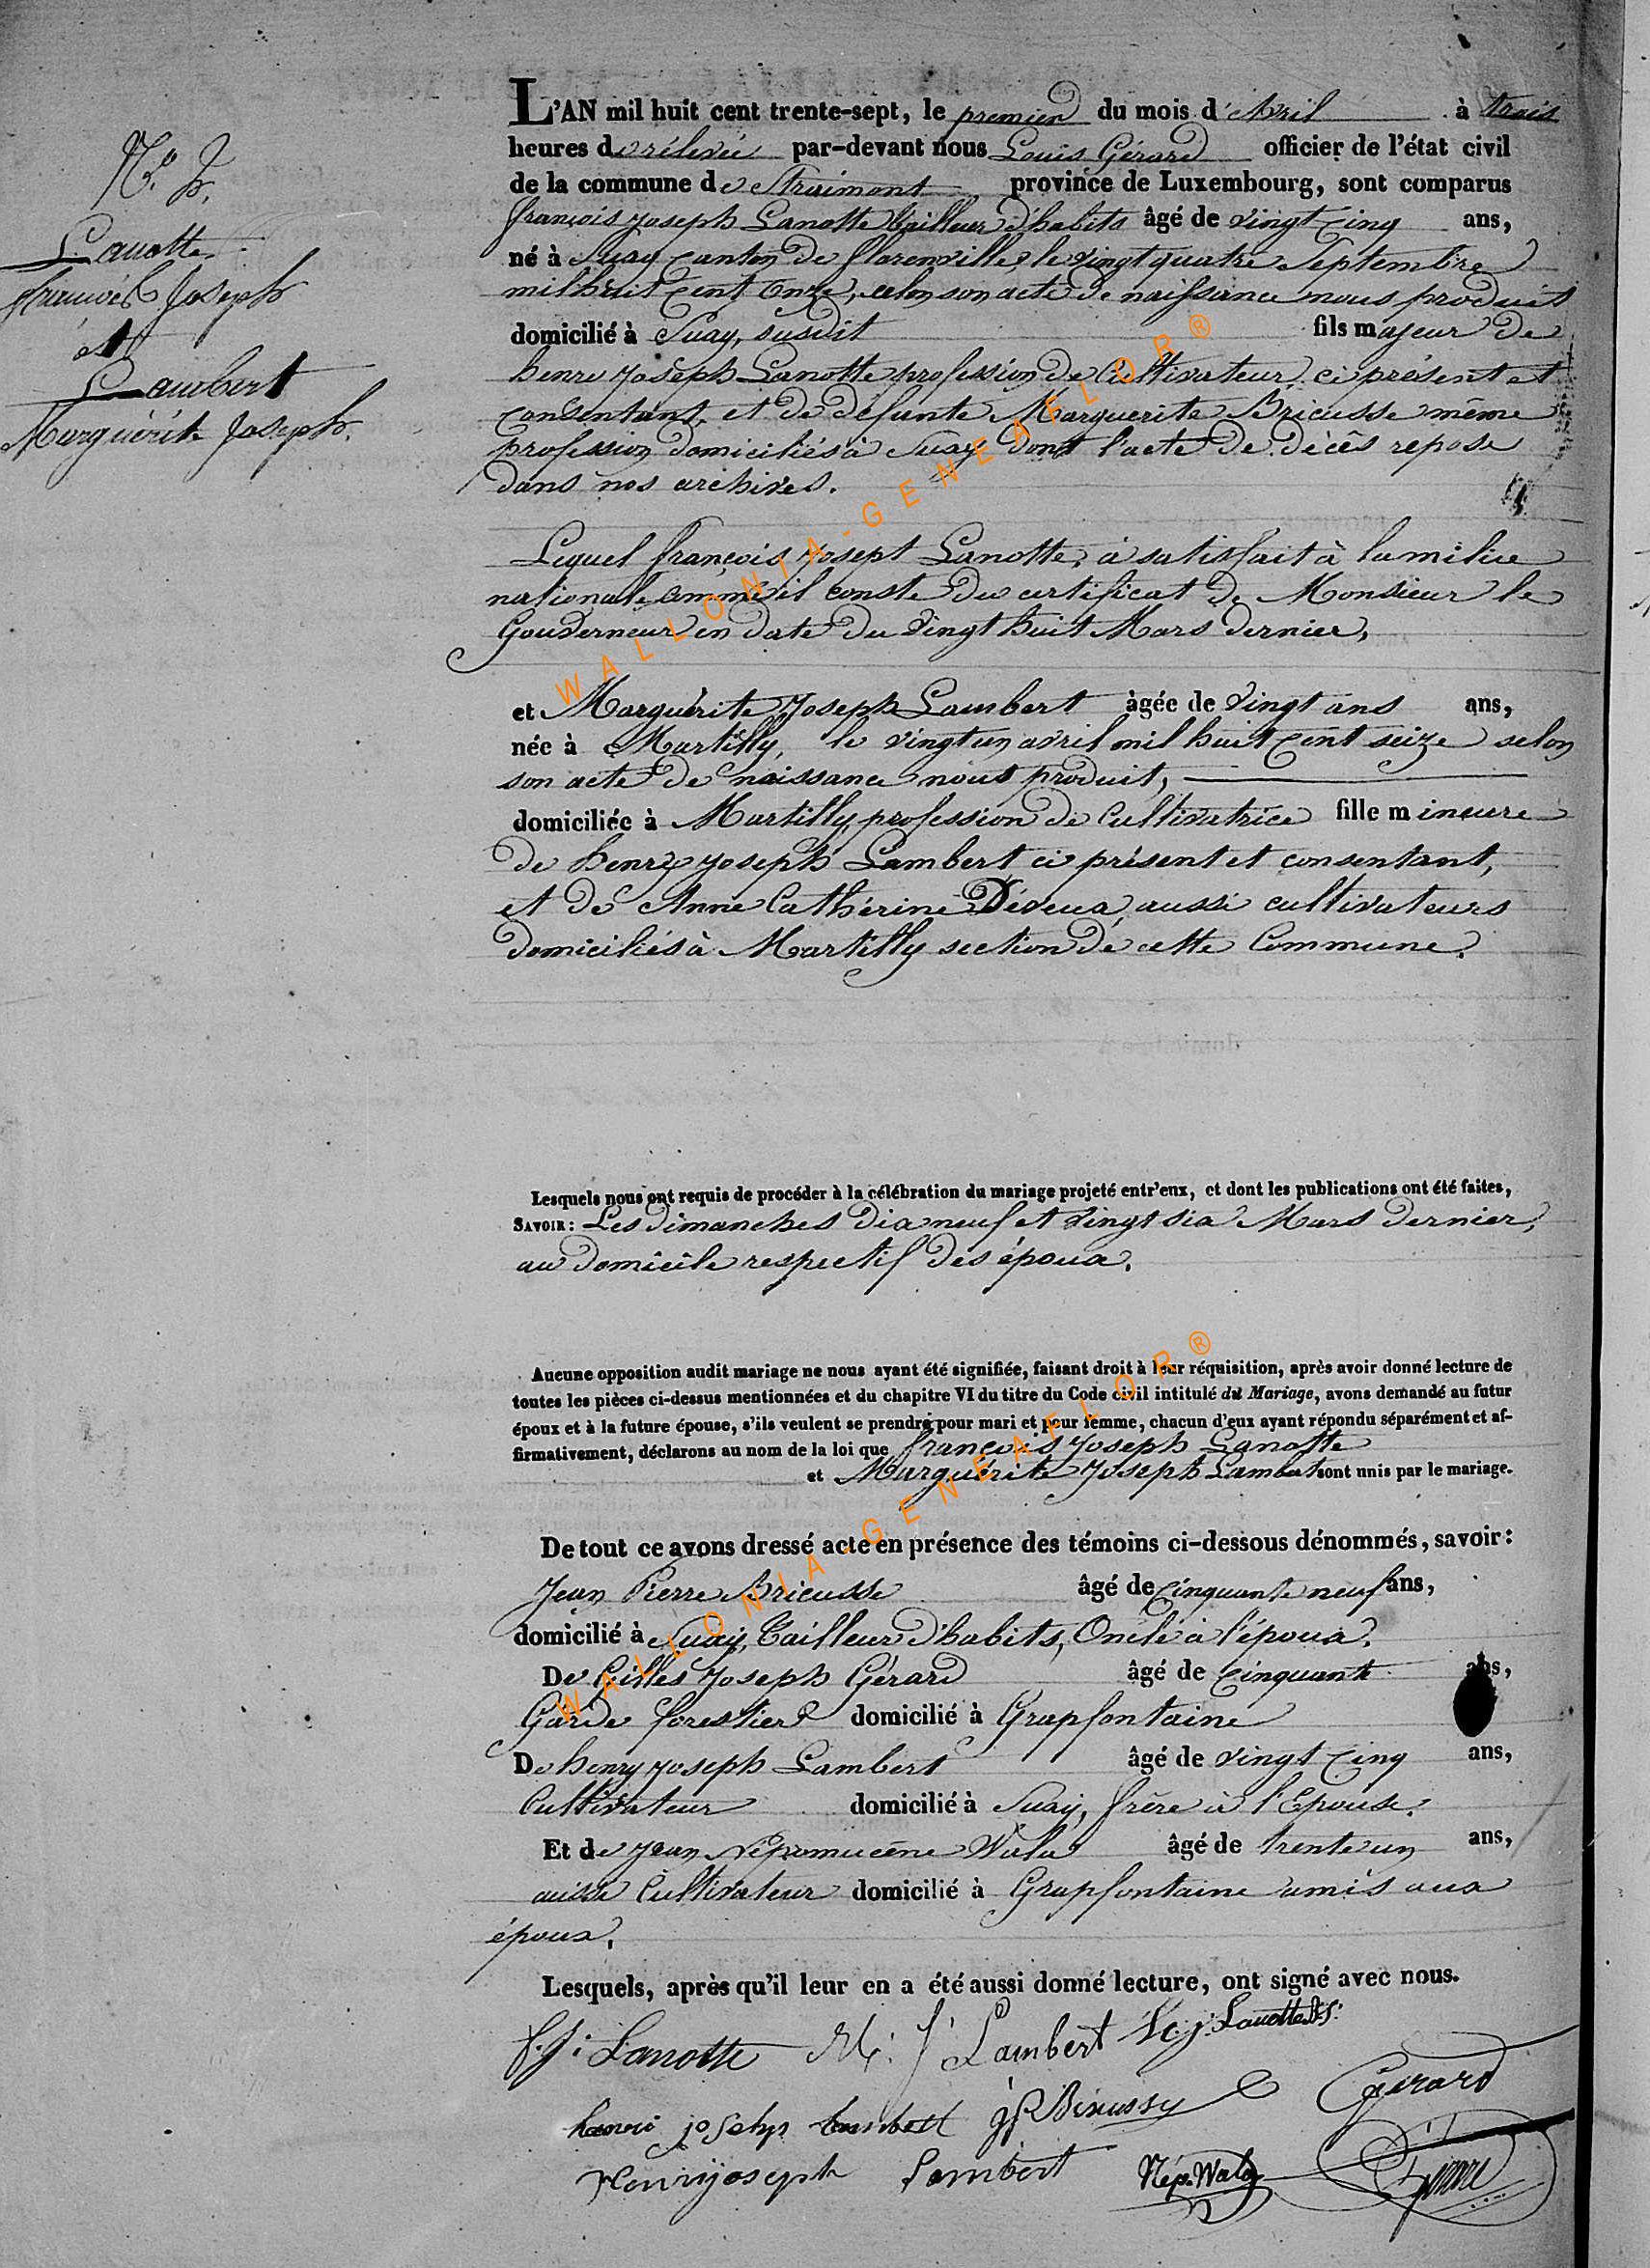 L'AN mil huit cent trente-sept, le premier du mois d'Avril à trois
heures de rélevée par-devant nous Louis Gérard officier de l'état civil
de la commune de Straimont province de Luxembourg, sont comparus
françois Joseph Lanotte tailleur d'habits âgé de vingt cinq ans,
né à Suxy canton de florenville, le vingt quatre Septembre
mil huit cent onze, selon son acte de naissance nous produit
domicilié à Suxy, susdit fils majeur de
henry Joseph Lanotte profession de Cultivateur ci présent et
consentant, et de défunte Marguerite Bricusse même
profession domiciliés à Suxy dont l'acte de décès repose
dans nos archives.
Lequel françois Josept Lanotte, à satisfait à la milice
nationale comme il conste du certificat de Monsieur le
Gouverneur en date du vingt huit Mars dernier,
et Marguérite Joseph Lambert âgée de vingt ans ans,
née à Martilly, le vingt un avril mil huit cent seize selon
son acte de naissance nous produit,
domiciliée à Martilly, profession de Cultivatrice fille mineure
de henry Joseph Lambert ci présent et consentant,
et de Anne Cathérine Déveux, aussi cultivateurs
domiciliés à Martilly section de cette Commune.
Nº
Lanotte
françois Joseph
et
Lambert
Marguérite Joseph.
Lesquels nous ont requis de procéder à la célébration du mariage projeté entr'eux, et dont les publications ont été faites,
SAVOIR: Les dimanches dix neuf et vingt six Mars dernier,
au domicile respectif des époux.
Aucune opposition audit mariage ne nous ayant été signifiée, faisant droit à leur réquisition, après avoir donné lecture de
toutes les pièces ci-dessus mentionnées et du chapitre VI du titre du Code civil intitulé du Mariage, avons demandé au futur
époux et à la future épouse, s'ils veulent se prendre pour mari et pour femme, chacun d'eux ayant répondu séparément et af-
firmativement, déclarons au nom de la loi que françois Joseph Lanotte
et Marguérite Joseph Lambert sont unis par le mariage.
De tout ce avons dressé acte en présence des témoins ci-dessous dénommés, savoir:
Jean Pierre Bricusse âgé de cinquante neuf ans,
domicilié à Suxy, Tailleur d'habits, Oncle à l'époux.
De Gilles Joseph Gérard âgé de cinquante ans,
Garde forestier domicilié à Grapfontaine
De henry Joseph Lambert âgé de vingt cinq ans,
Cultivateur domicilié à Suxy, frère à l'Epouse.
Et de Jean Népomucène Wala âgé de trente un ans,
aussi Cultivateur domicilié à Grapfontaine amis aux
époux.
Lesquels, après qu'il leur en a été aussi donné lecture, ont signé avec nous.
f. j. Lanotte M. J Lambert j. Lanotte
henri joseph Lambert jp Bricussy Gerard
Henrijoseph Lambert Nép. Wala Gérard
WALLONIA-GENEAFLOR®
WALLONIA-GENEAFLOR®